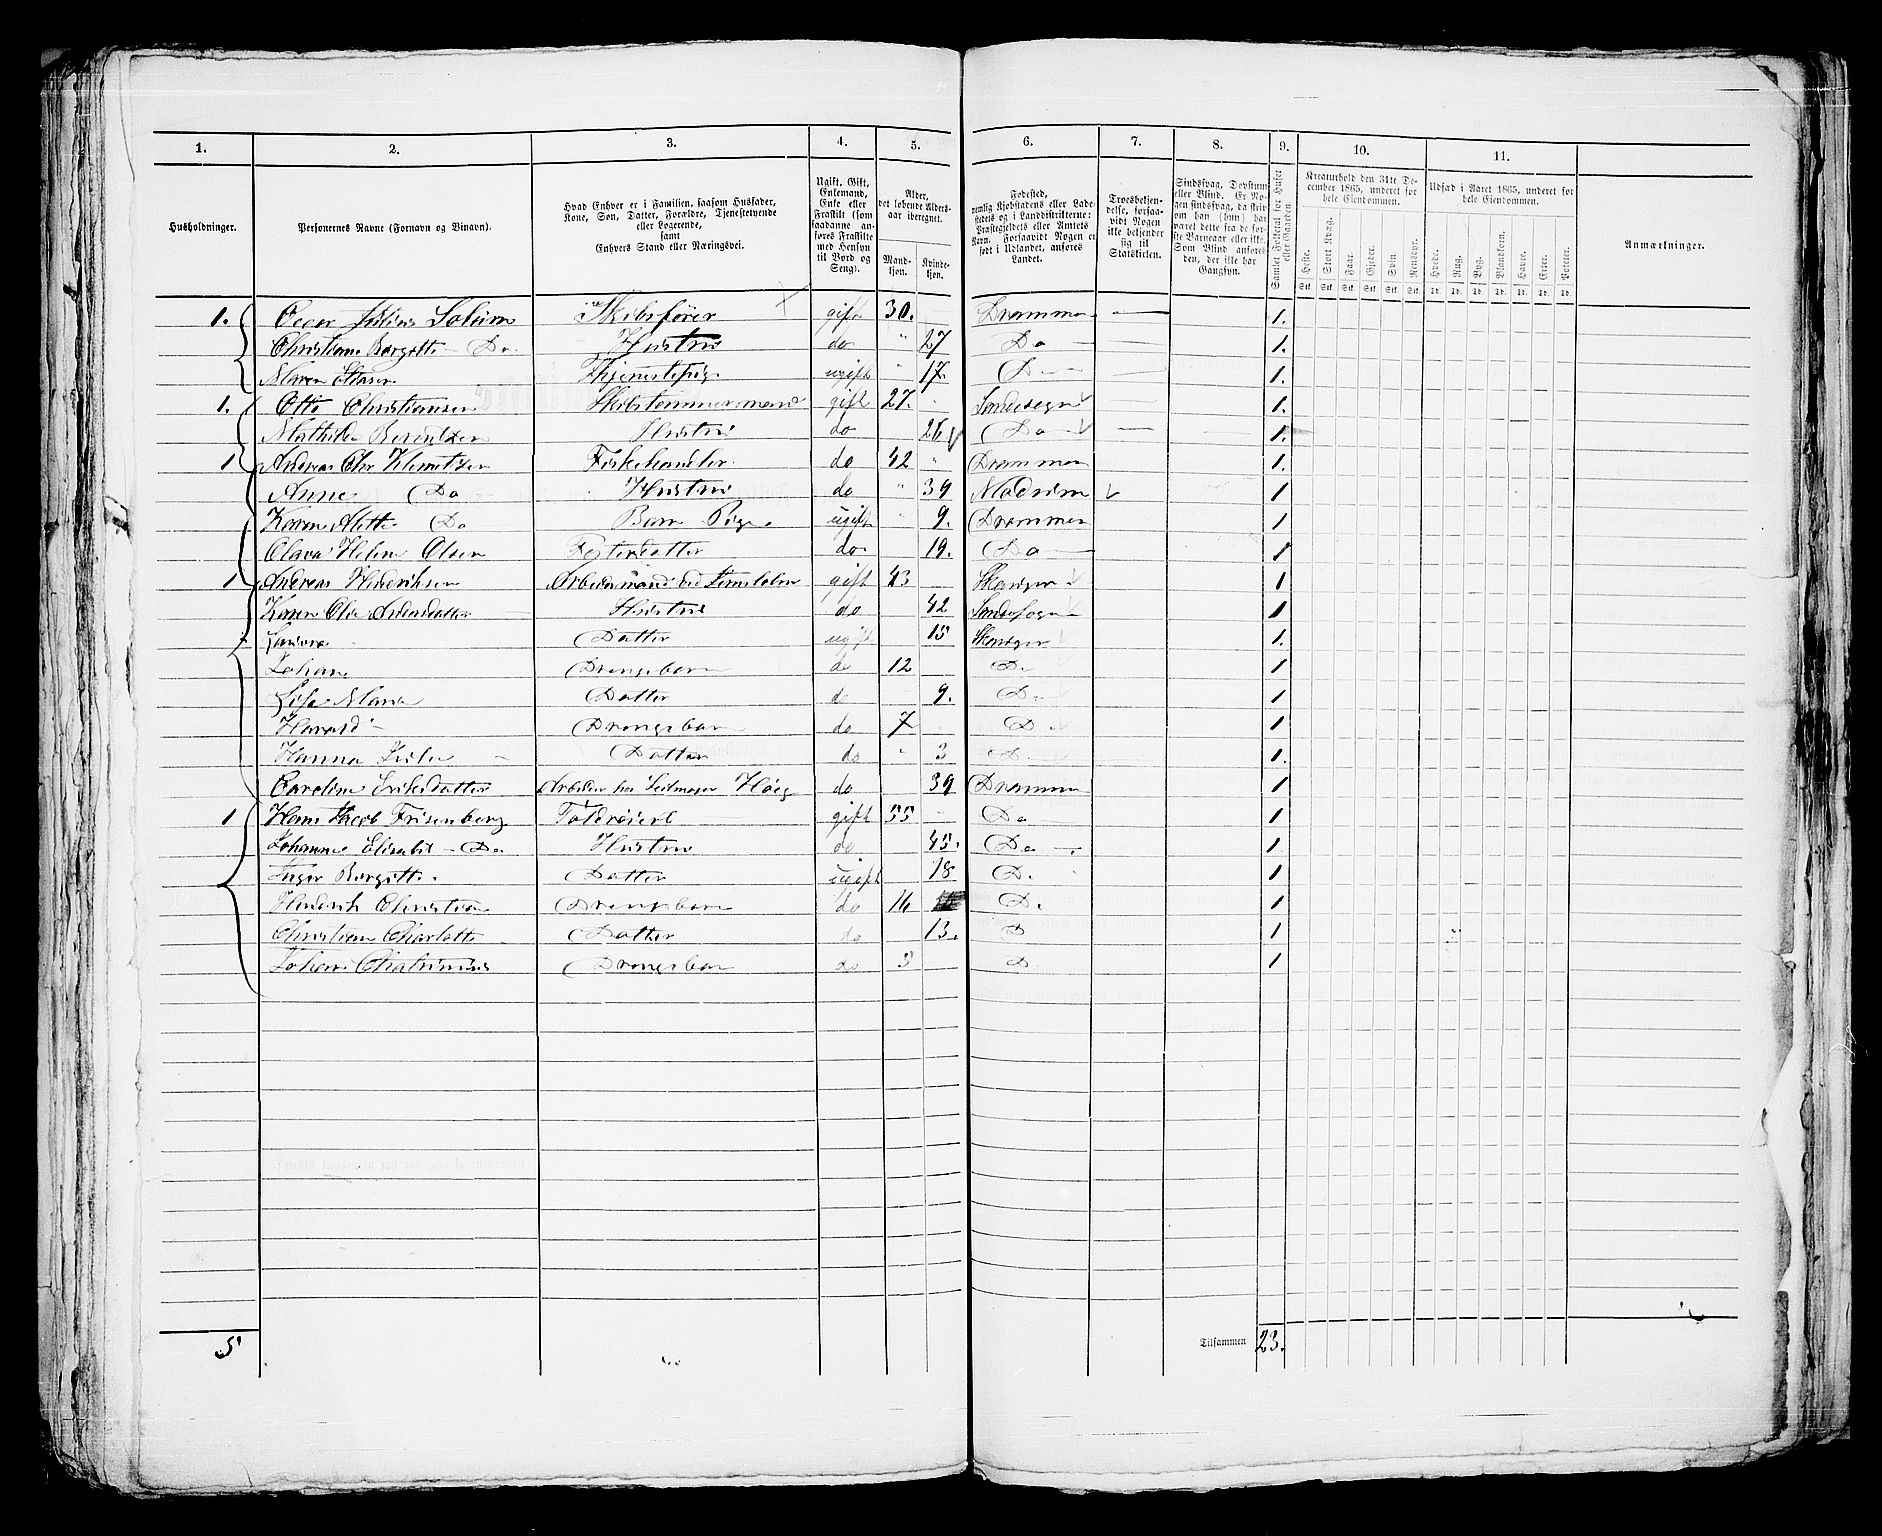 1. 2. 3. 4. 5. 6. 7. 8. 9. 10. 11.
Husholdninger.
Personernes Navne (Fornavn og Binavn).
Hvad Enhver er i Familien, saasom Husfader,
Kone, Søn, Datter, Forældre, Tjenestetyende
eller Logerende,
samt
Enhvers Stand eller Næringsvei.
Ugift, Gift,
Enkemand,
Enke eller
Fraskilt (som
saadanne an-
føres Fraskilte
med Hensyn
til Bord og
Seng).
Alder,
det løbende Alders-
aar iberegnet.
Mand-
kjøn.
Kvinde-
kjøn.
Fødested,
nemlig Kjøbstadens eller Lade-
stedets og i Landdistrikterne:
Præstegjeldets eller Amtets
Navn. Forsaavidt Nogen er
født i Udlandet, anføres
Landet.
Troesbekjen-
delse, forsaa-
vidt Nogen
ikke bekjender
sig til
Statskirken.
Sindssvag, Døvstum
eller Blind. Er No-
gen sindssvag, da skri-
ves om han (hun) har
været dette fra de før-
ste Barneaar eller ikke.
Som Blind anføres
den, der ikke har
Gangsyn.
Samlet Folketal for Huset
eller Gaarden.
Kreaturhold den 31te De-
cember 1865, underet for
hele Eiendommen.
Heste. Stort Kvæg. Faar. Gjeder. Svin. Rensdyr.
Stk. Stk. Stk. Stk. Stk. Stk.
Udsæd i Aaret 1865, underet for
hele Eiendommen.
Hvede. Rug. Byg. Blandkorn. Havre. Erter. Poteter.
Td. Td. Td. Td. Td. Td. Td.
Anmærkninger.
1. Julius Solum Skibsfører gift 30. Drammen 1.
Do Hustru do " 27 Do 1.
Maren Tjenestepige ugift " 17. Do 1.
1. Otto Christiansen Skibstømmermand gift 27. Sandesogn 1.
Mathilde Berntsen Hustru do 26 Do 1.
1 Andreas Chr Do Fiskehandler do 42 " Drammen 1.
Anne Do Hustru do " 39 Modum 1
Karen Mette Do Barn Pige ugift " 9. Drammen 1
Olava Helene Olsen Fosterdatter do 19. Do 1
1 Andreas Hendriksen Arbeidsmand gift 43 Skoger 1
Karen Hustru do 42 Sandesogn 1
Datter ugift 15 Skoger 1.
Johan Drengebarn do 12 Do 1
Maria Datter do 9. Do 1
Drengebarn do 7 Do 1
Hanna Datter do " 3 Do 1.
Caroline Eriksdatter Arbeider hos Seilmager Høeg do 39 Drammen 1
1 Hans Jacob Frisenberg Toldrorer gift 55 Do 1
Johanne Elisabet Do Hustru do 45. Do 1.
Inger Bergitte Datter ugift 18 Do 1
Hendrik Christian Drengebarn do 16 Do 1
Christiane Charlotte Datter do 13. D 1
Johan Drengebarn do 5 D 1
5 Tilsammen 23.